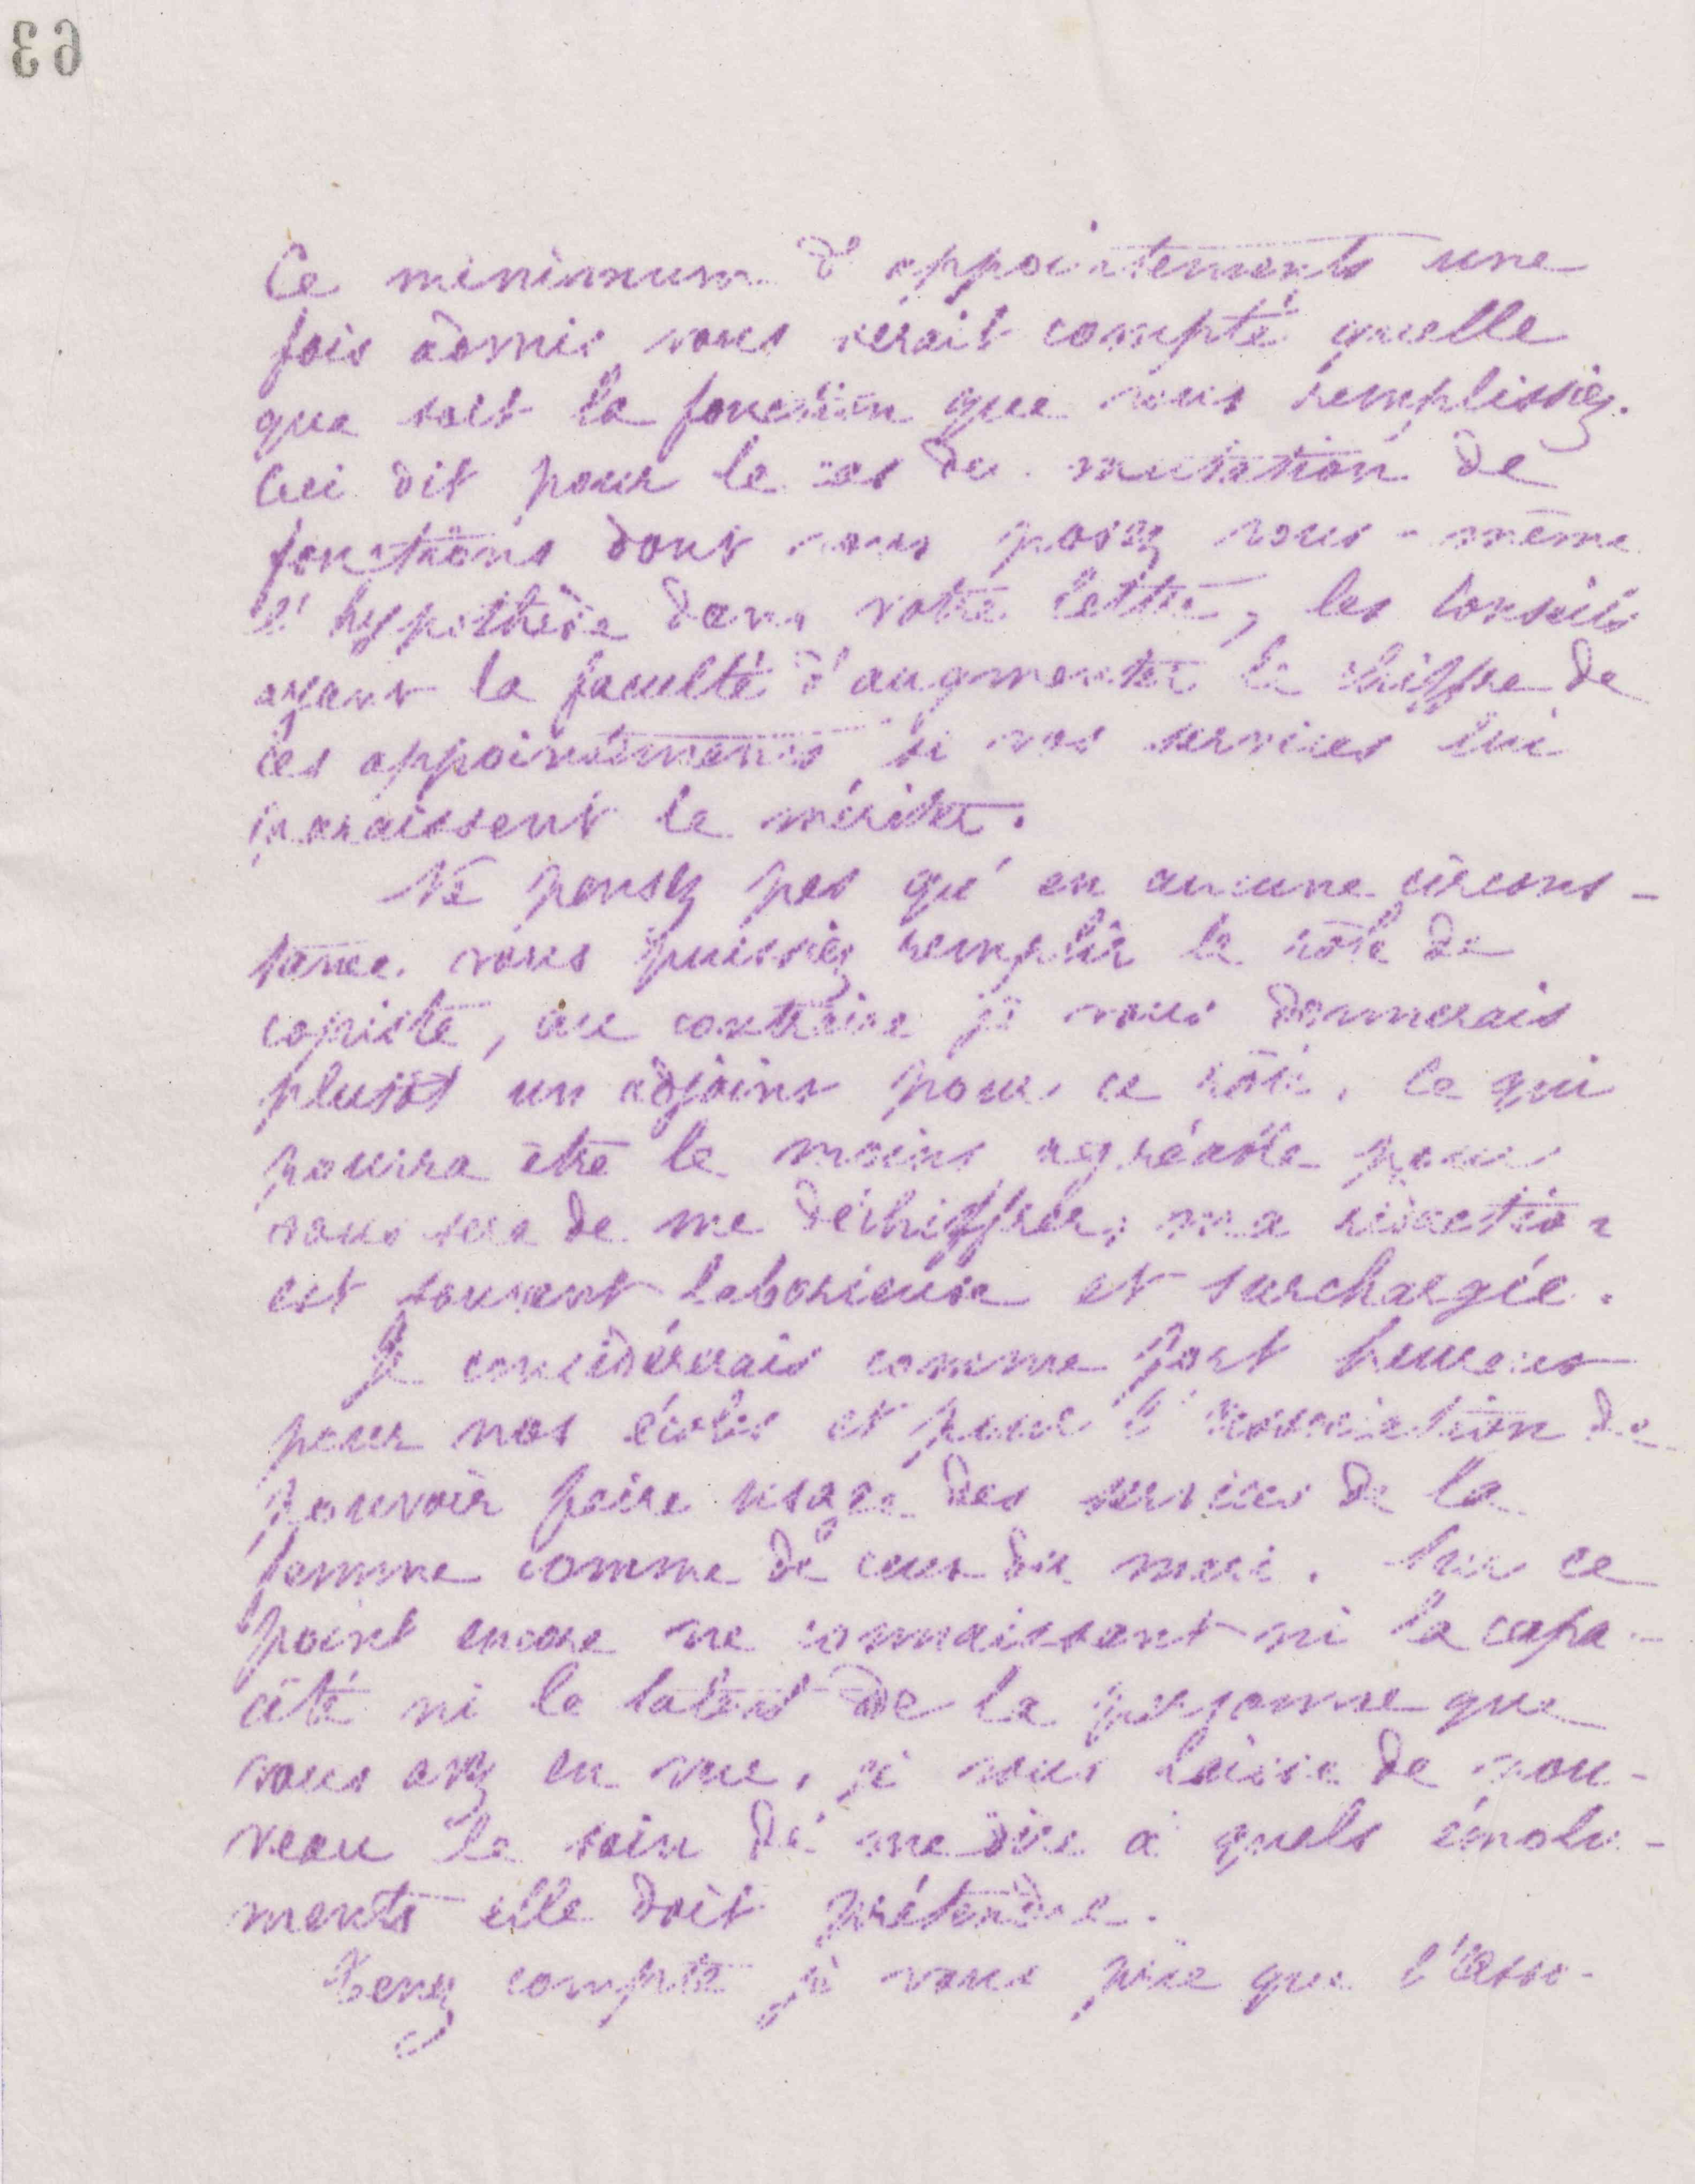 63
Ce minimum d'appointements une
fois admis vous serait compté quelle
que soit la fonction que vous remplissiez.
Ceci dit pour le cas de mutation de
fonctions dont vous posez vous-même
l'hypothèse dans votre lettre, les Conseils
ayant la faculté d'augmenter le chiffre de
ces appointements si vos services lui
paraissent le mériter.
Ne pensez pas qu'en aucune circons-
tance vous puissiez remplir le rôle de
copiste, au contraire je vous donnerais
plutôt un adjoint pour ce rôle. Ce qui
pourra être le moins agréable pour
vous sera de me déchiffrer, ma rédaction
est souvent laborieuse et surchargée.
Je considérerais comme fort heureux
pour nos écoles et pour l'association de
pouvoir faire usage des services de la
femme comme de ceux du mari. Sur ce
point encore ne connaissant ni la capa-
cité ni le talent de la personne que
vous avez en vue, je vous laisse de nou-
veau le soin de me dire à quels émolu-
ments elle doit prétendre.
Tenez compte je vous prie que l'Asso-